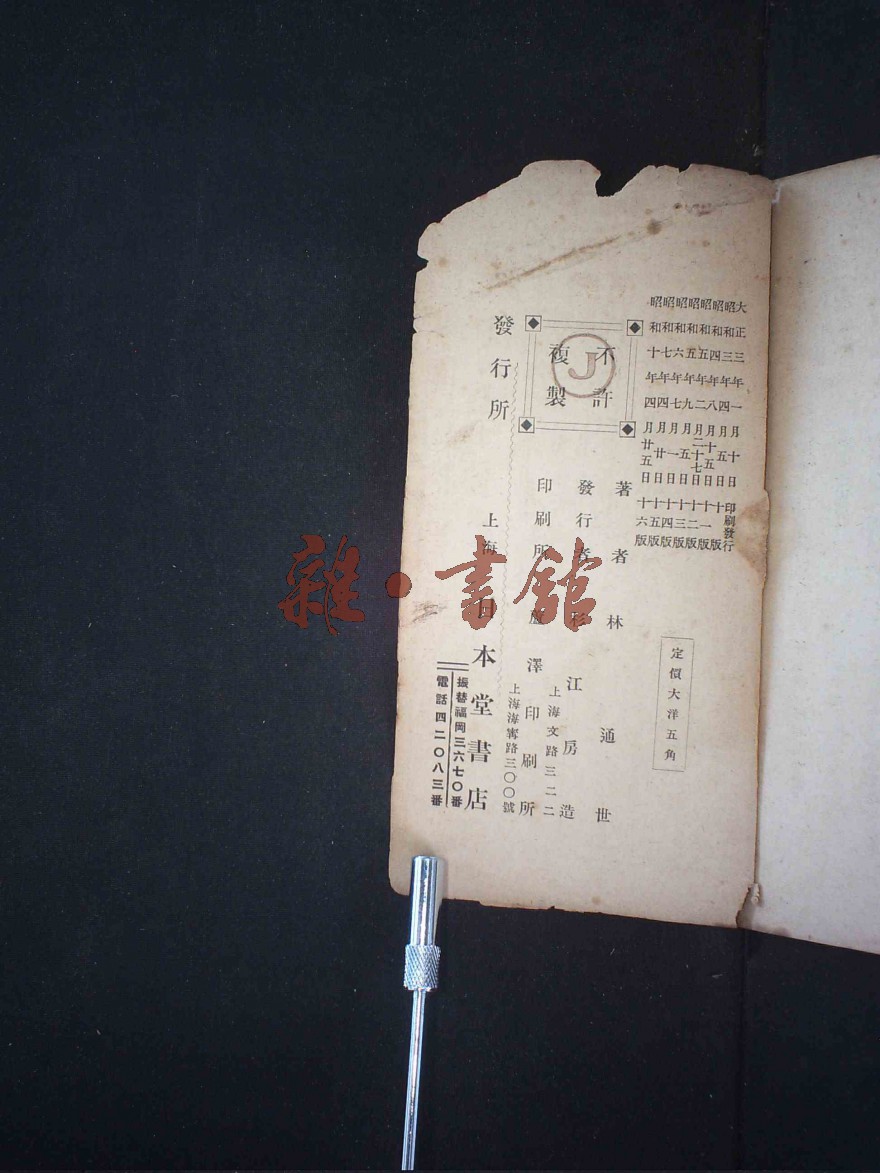 大正三年一月十日印刷發行
昭和三年四月五日十版
昭和四年八月十五日十一版
昭和五年二月二十七日十二版
昭和五年九月五日十三版
昭和六年七月一日十四版
昭和七年四月廿日十五版
昭和十年四月廿五日十六版
定價大洋五角
不許
複製
J
著者 林通世
發行者 杉江房造
上海文路三二二
印刷所 蘆澤印刷所
上海海寗路三〇〇號
發行所 上海 日本堂書店
振替福岡三六七〇番
電話四二〇八三番
雜·書館